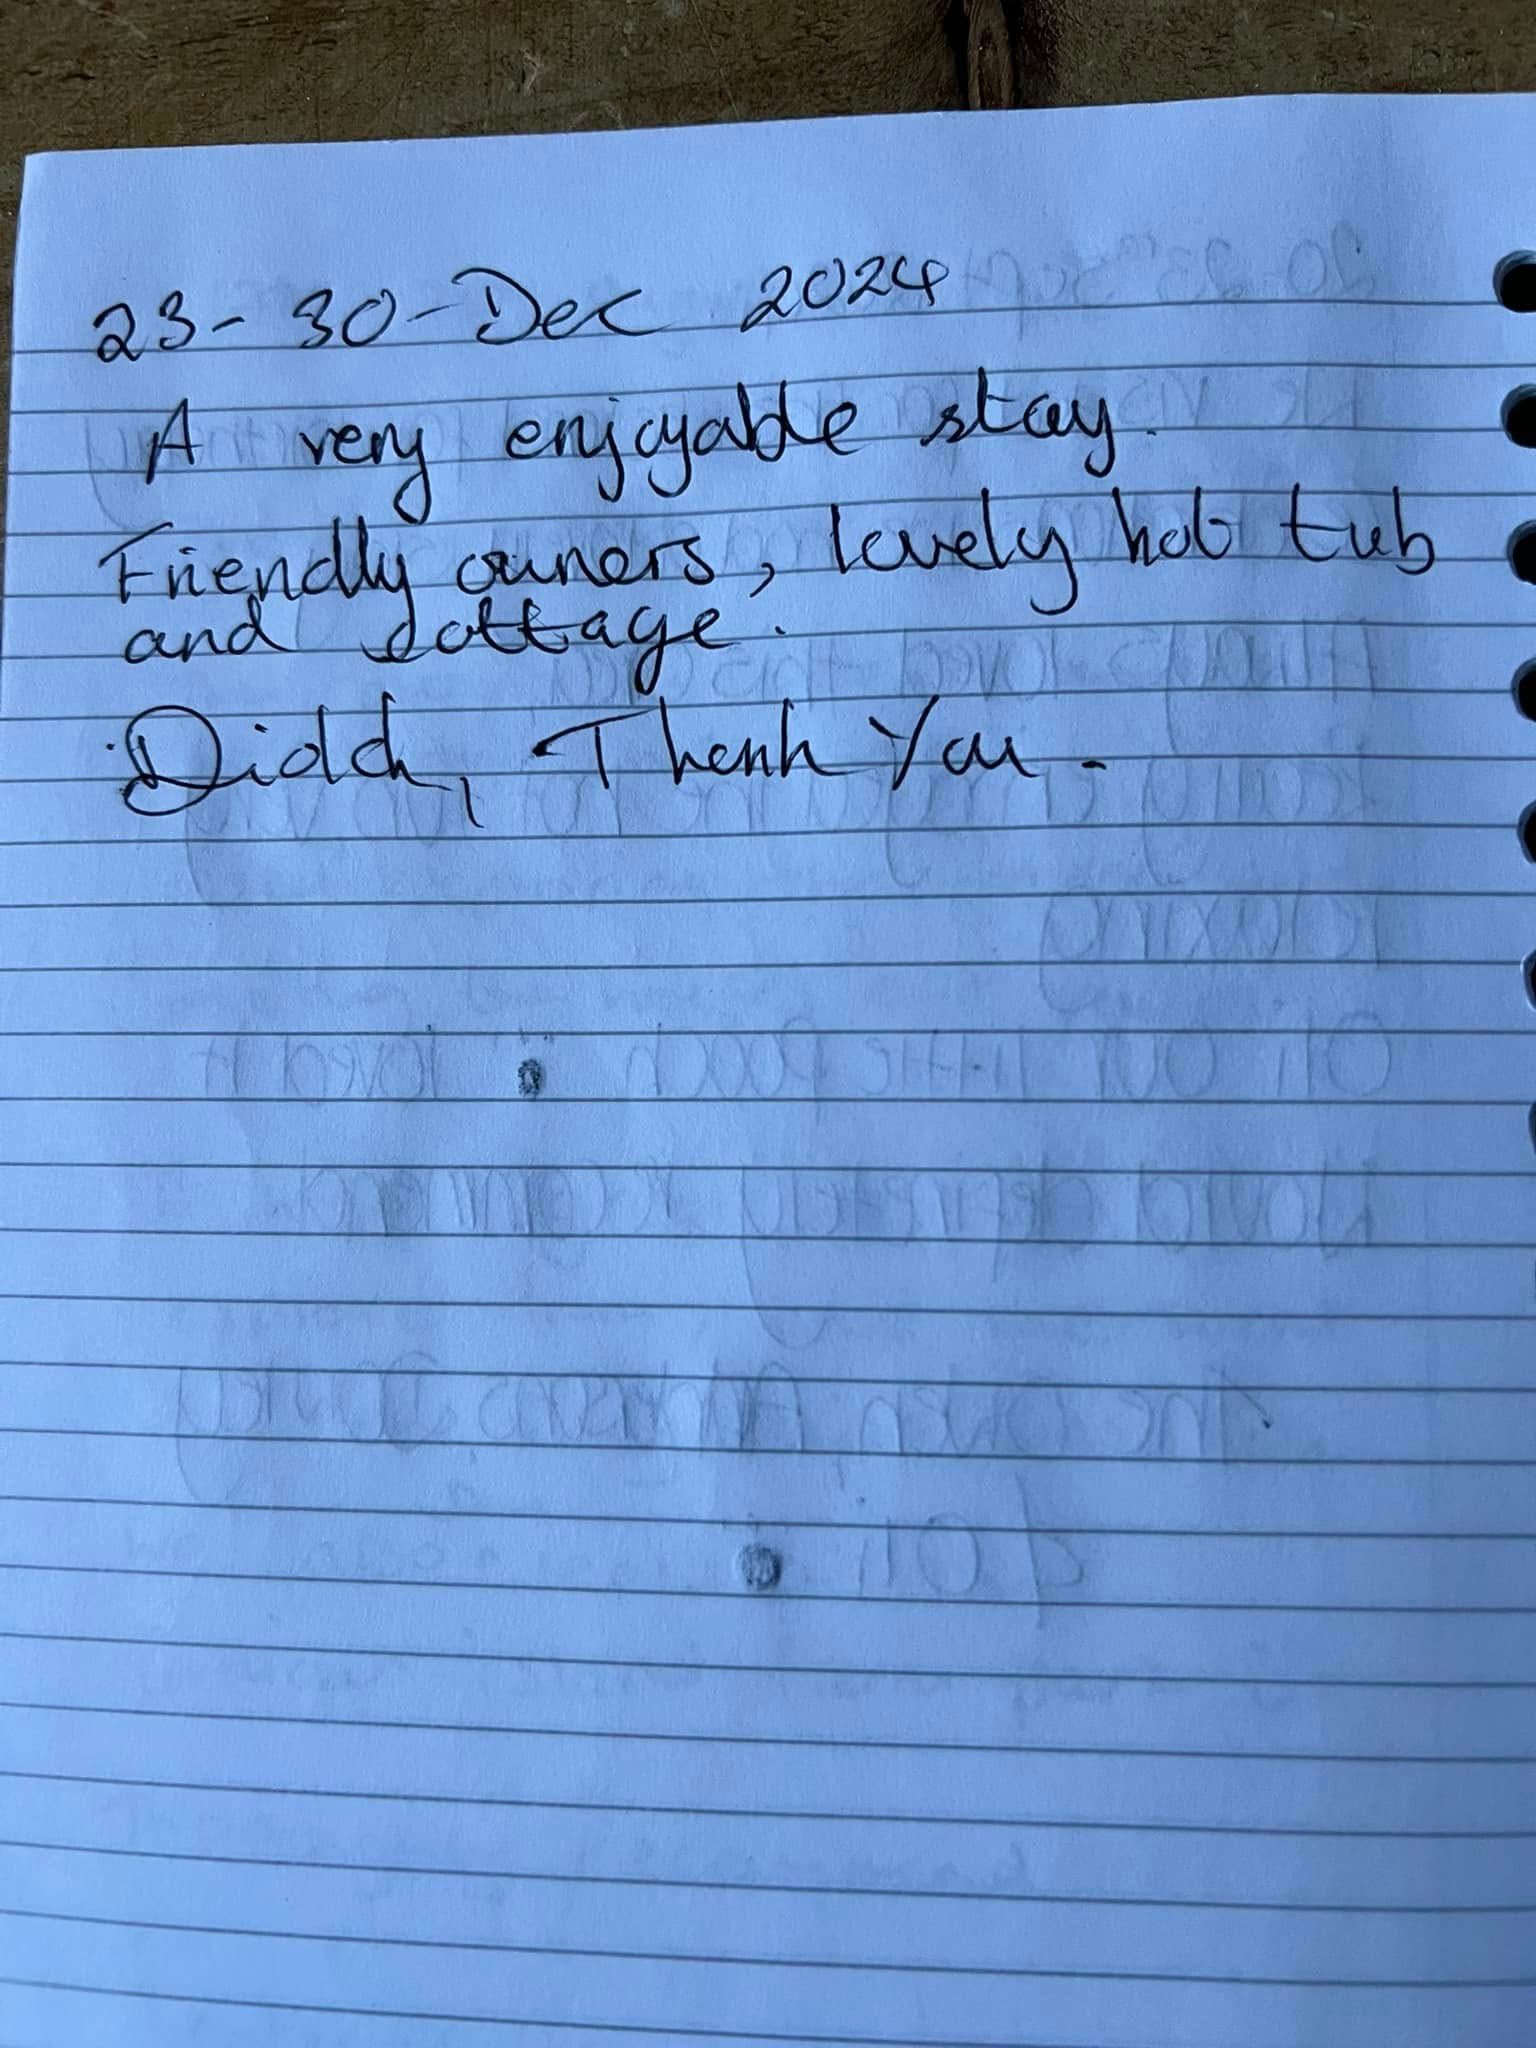 23 - 30 - Dec 2024
A very enjoyable stay.
Friendly owners, lovely hot tub
and cottage.
Diolch, Thank You.